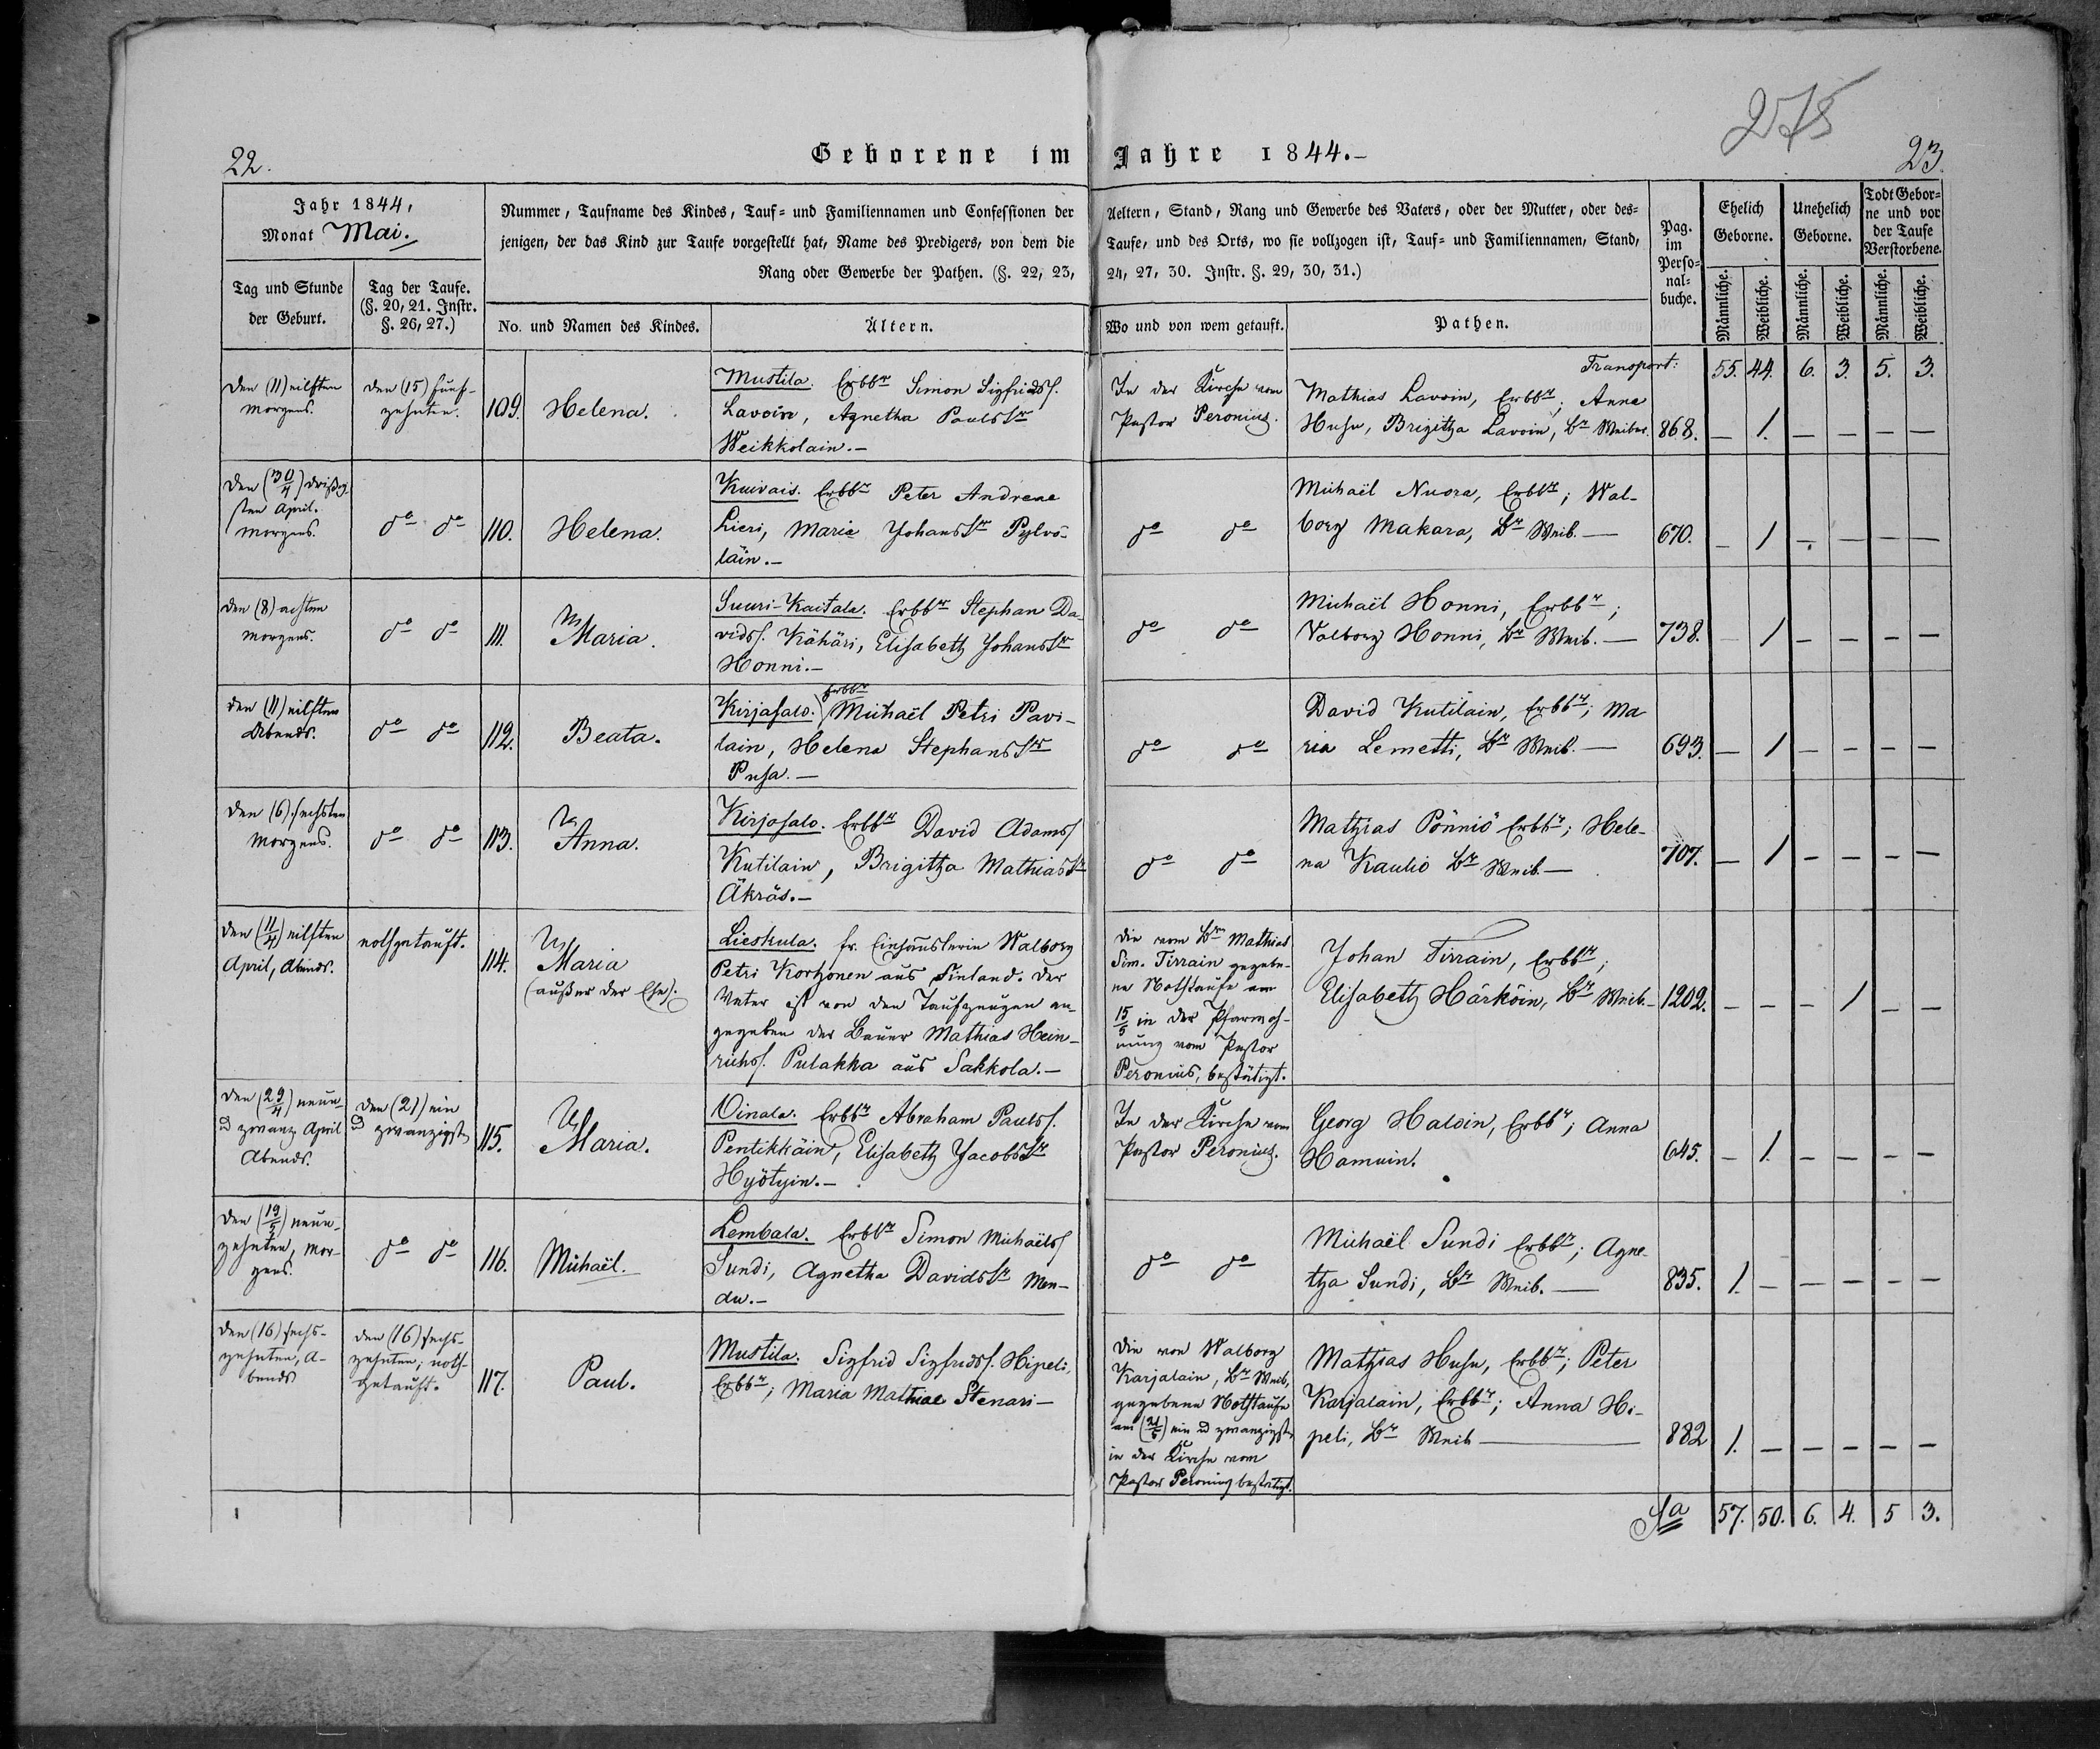 275
22.
Geborene im Jahre 1844.
23.
Jahr 1844,
Monat Mai.
Tag und Stunde
der Geburt.
Tag der Taufe.
(§. 20, 21. Instr.
§. 26, 27.)
Nummer, Taufname des Kindes, Tauf- und Familiennamen und Confessionen der
jenigen, der das Kind zur Taufe vorgestellt hat, Name des Predigers, von dem die
Rang oder Gewerbe der Pathen. (§. 22, 23,
No. und Namen des Kindes.
Ältern.
Aeltern, Stand, Rang und Gewerbe des Vaters, oder der Mutter, oder des-
Taufe, und des Orts, wo sie vollzogen ist, Tauf- und Familiennamen, Stand,
24, 27, 30. Instr. §. 29, 30, 31.)
Wo und von wem getauft.
Pathen.
Pag.
im
Perso-
nal-
buche.
Ehelich
Geborne.
Unehelich
Geborne.
Todt Gebor-
ne und vor
der Taufe
Verstorbene.
Männliche.
Weibliche.
Männliche.
Weibliche.
Männliche.
Weibliche.
Transport: 55. 44. 6. 3. 5. 3.
den (11) eilften
Morgens.
den (15) fünf-
zehnten.
109.
Helena.
Mustila. Erbbr Simon Sigfrids.
Lavoin, Agnetha Paulstr
Weikkolain.—
In der Kirche vom
Pastor Peronius.
Mathias Lavoin, Erbbr; Anna
Husu, Brigitha Lavoin, Br Weiber.
868. — 1. — — — —
den (30/4) dreißig-
sten April.
Morgens.
do do
110.
Helena.
Kuivais. Erbbr Peter Andreae
Lieri, Maria Johanstr Pylvö-
läin.—
do do
Michaël Nuora, Erbbr; Wal-
borg Makara, Br Weib.—
670. — 1 — — — —
den (8) achten
Morgens.
do do
111.
Maria.
Suuri-Kaitala. Erbbr Stephan Da-
vids. Kähäri, Elisabeth Johanstr
Honni.—
do do
Michaël Honni, Erbbr;
Valborg Honni, Br Weib.—
738. — 1 — — — —
den (11) eilften
Abends.
do do
112.
Beata.
Erbbr
Kirjasalo. Michaël Petri Pavi-
lain, Helena Stephanstr
Pusa.—
do do
David Kutilain, Erbbr; Ma
ria Lemetti, Br Weib.—
693. — 1 — — — —
den (6) sechsten
Morgens.
do do
113.
Anna.
Kirjasalo. Erbbr David Adams
Kutilain, Brigitha Mathiastr
Äkräs.—
do do
Mathias Pönniö Erbbr; Hele-
na Kaulio Br Weib.—
707. — 1 — — — —
den (11/4) eilften
April, Abends.
nothgetauft.
114.
Maria
(außer der Ehe).
Lieskula. fr. Einhäuslerin Walborg
Petri Korhonen aus Finland. Der
Vater ist von den Taufzeugen an-
gegeben der Bauer Mathias Hein-
richs. Pulakka aus Sakkola.—
die vom Brn Mathias
Sim. Tirrain gegebe-
ne Nothtaufe am
15/5 in der Pfarrwoh-
nung vom Pastor
Peronius, bestätigt.
Johan Tirrain, Erbbr;
Elisabeth Härköin, Br Weib.
1202. — — — 1 — —
den (29/4) neun-
u zwanz April
Abends.
den (21) ein
u zwanzigst
115.
Maria.
Oinala. Erbbr Abraham Pauls.
Pentikkäin, Elisabeth Jacobstr
Hyötyin.—
In der Kirche vom
Pastor Peronius.
Georg Haloin, Erbbr; Anna
Hamuin.
645. — 1. — — — —
den (19/5) neun-
zehnten, Mor-
gens.
do do
116.
Michaël.
Lembala. Erbbr Simon Michaëls
Sundi, Agnetha Davidstr Men-
du.—
do do
Michaël Sundi Erbbr; Agne
tha Sundi, Br Weib.—
835. 1. — — — — —
den (16) sechs-
zehnten, A-
bends
den (16) sechs-
zehnten; noth-
getauft.
117.
Paul.
Mustila. Sigfrid Sigfrids. Hipeli,
Erbbr; Maria Mathiae Stenari—
die von Walborg
Karjalain, Br Weib,
gegebene Nothtaufe
am (21/5) ein u zwanzigst
in der Kirche vom
Pastor Peronius bestätigt.
Mathias Husu, Erbbr; Peter
Karjalain, Erbbr; Anna Hi-
peli, Br Weib—
882 1. — — — — —
Sa 57. 50. 6. 4. 5 3.